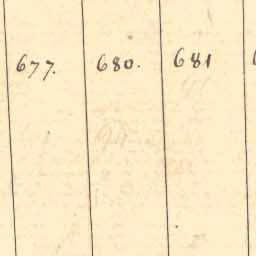 677. 680. 681